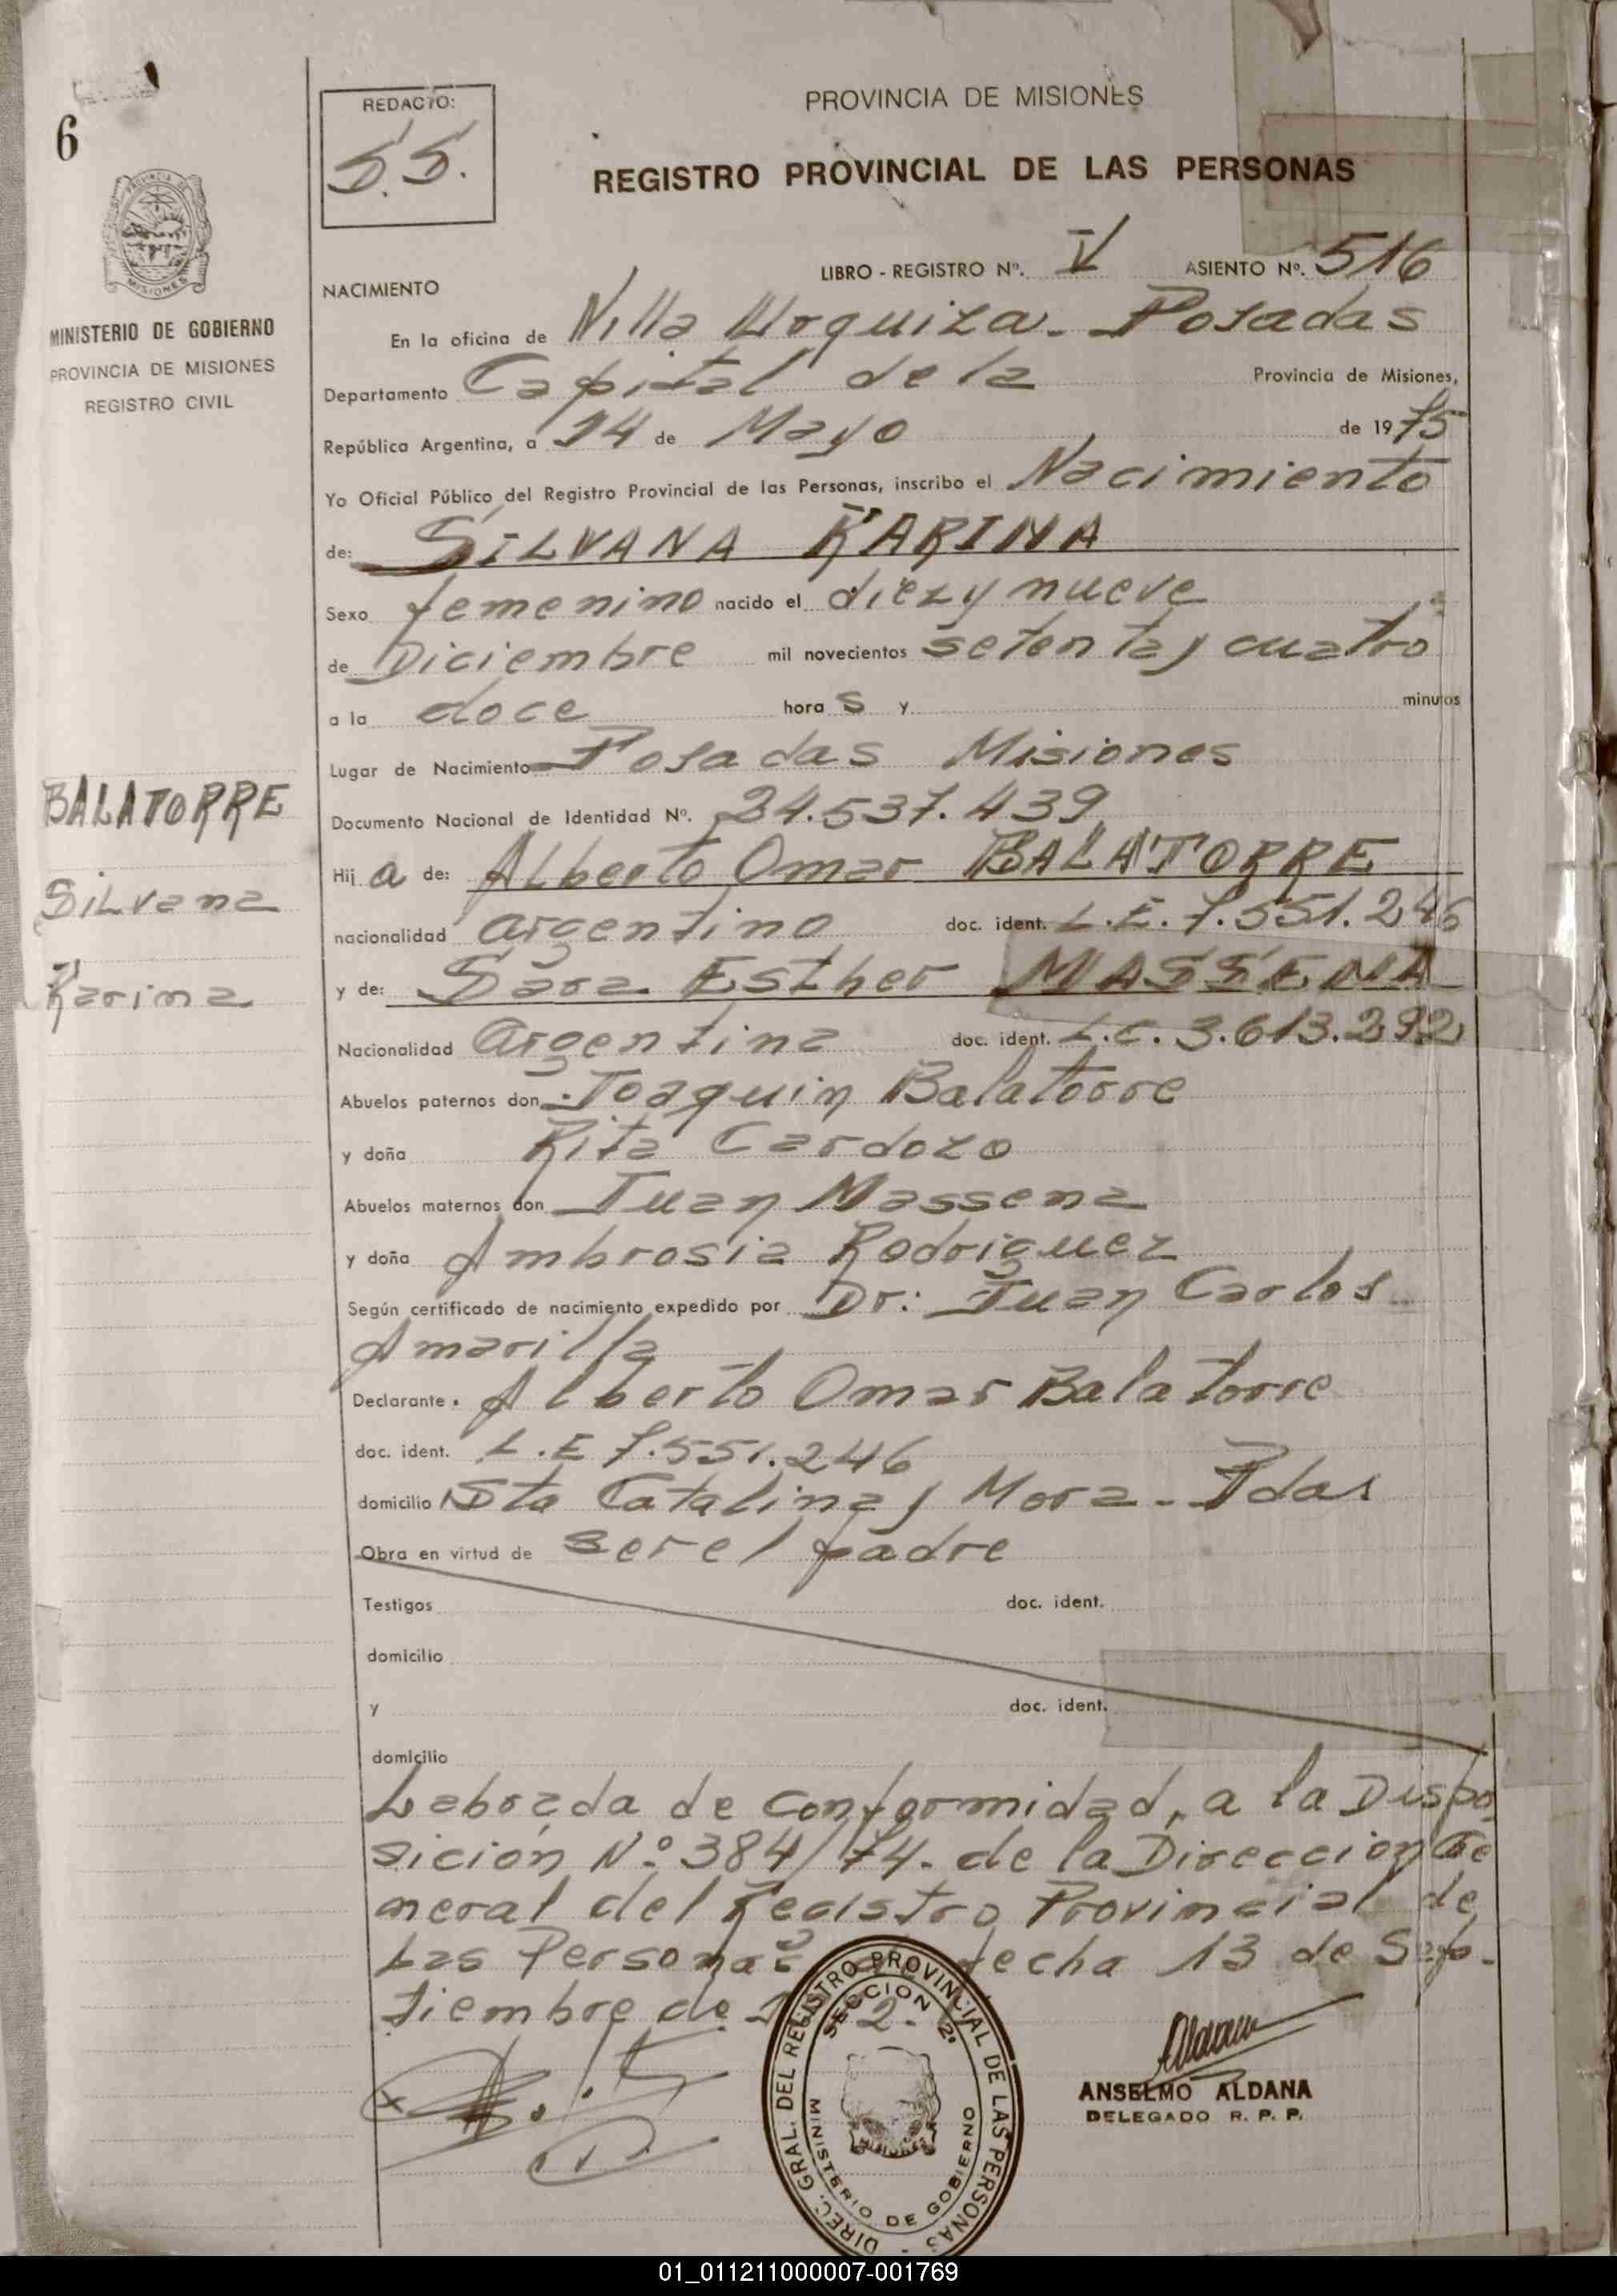 6
REDACTO:
S.S.
PROVINCIA DE MISIONES
REGISTRO PROVINCIAL DE LAS PERSONAS
PROVINCIA DE
MISIONES
MINISTERIO DE GOBIERNO
PROVINCIA DE MISIONES
REGISTRO CIVIL
LIBRO - REGISTRO Nº. V ASIENTO Nº. 516
NACIMIENTO
En la oficina de Villa Urquiza - Posadas
Departamento Capital de la Provincia de Misiones,
República Argentina, a 14 de Mayo de 1975
Yo Oficial Público del Registro Provincial de las Personas, inscribo el Nacimiento
de: SILVANA KARINA
Sexo femenino nacido el diez y nueve
de Diciembre mil novecientos setenta y cuatro
a la doce hora s y minutos
Lugar de Nacimiento Posadas Misiones
BALATORRE
Silvana
Karina
Documento Nacional de Identidad Nº. 24.537.439
Hij a de: Alberto Omar BALATORRE
nacionalidad argentino doc. ident. L.E. 7.551.246
y de: Sara Esther MASSENA
Nacionalidad Argentina doc. ident. L.C. 3.613.292
Abuelos paternos don Joaquin Balatorre
y doña Rita Cardozo
Abuelos maternos don Juan Massena
y doña Ambrosia Rodriguez
Según certificado de nacimiento expedido por Dr: Juan Carlos
Amarilla
Declarante. Alberto Omar Balatorre
doc. ident. L.E 7.551.246
domicilio Sta Catalina y Mora - Pdas
Obra en virtud de ser el padre
Testigos doc. ident.
domicilio
y doc. ident.
domicilio
Labrada de conformidad, a la Dispo
sición Nº 384/74. de la Direccion Ge
neral del Registro Provincial de
Las Personas fecha 13 de Sep-
tiembre de
DIREC. GRAL. DEL REGISTRO PROVINCIAL DE LAS PERSONAS -
SECCION 2º
MISIONES
MINISTERIO DE GOBIERNO
ANSELMO ALDANA
DELEGADO R. P. P.
01_011211000007-001769